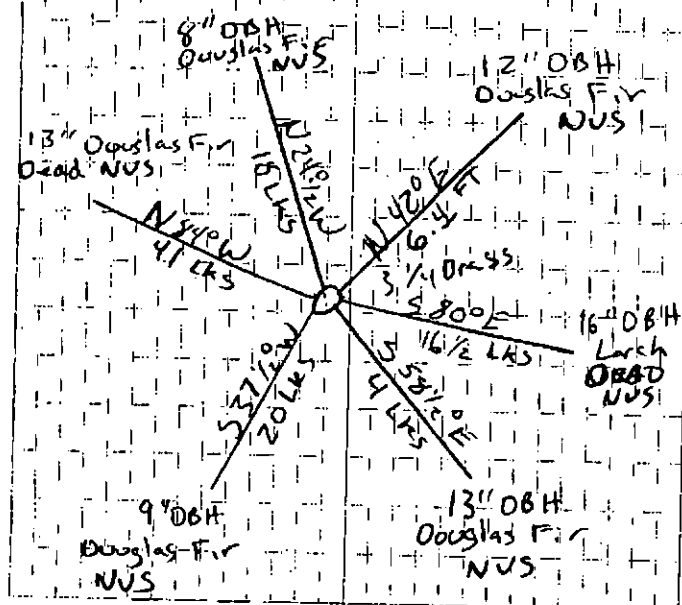 8" DBH
Douglas Fir
NVS
12" DBH
Douglas Fir
NVS
13" Douglas Fir
Dead NVS
N 24 1/2 W
18 LKS
N 42° E
6.4 FT
N 84° W
41 LKS
3 1/4 Brass
S 80° E
16 1/2 LKS
16" DBH
Larch
DEAD
NVS
S 58 1/2 ° E
4 LKS
S 37 1/2 ° W
20 LKS
9" DBH
Douglas-Fir
NVS
13" DBH
Douglas Fir
NVS